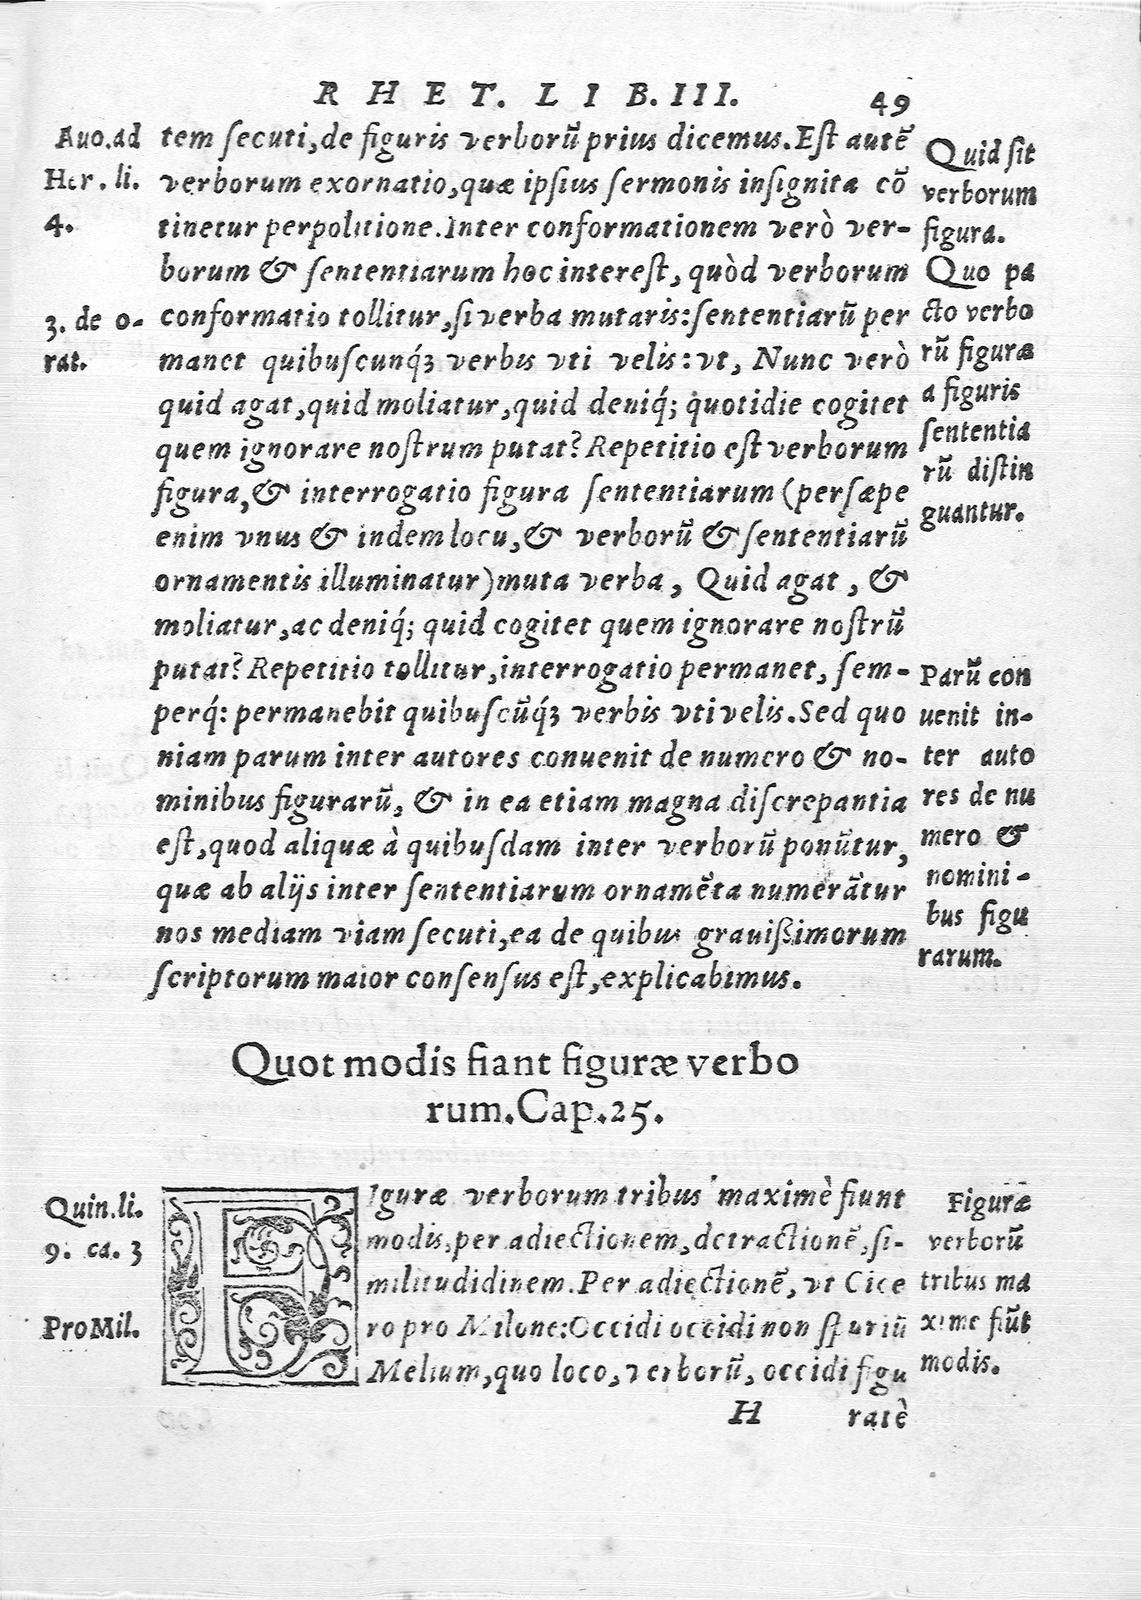 RHET. LIB. III. 49
Auo. ad
Her. li.
4.
3. de o-
rat.
tem secuti, de figuris verborū prius dicemus. Est autē
verborum exornatio, quæ ipsius sermonis insignita cō
tinetur perpolitione. Inter conformationem verò ver-
borum & sententiarum hoc interest, quòd verborum
conformatio tollitur, si verba mutaris: sententiarū per
manet quibuscunq́ꝫ verbis vti velis: vt, Nunc verò
quid agat, quid moliatur, quid deniq́; quotidie cogitet
quem ignorare nostrum putat? Repetitio est verborum
figura, & interrogatio figura sententiarum (persæpe
enim vnus & indem locu, & verborū & sententiarū
ornamentis illuminatur) muta verba, Quid agat, &
moliatur, ac deniq́; quid cogitet quem ignorare nostrū
putat? Repetitio tollitur, interrogatio permanet, sem-
perq́: permanebit quibuscūq́ꝫ verbis vti velis. Sed quo
niam parum inter autores conuenit de numero & no-
minibus figurarū, & in ea etiam magna discrepantia
est, quod aliquæ à quibusdam inter verborū ponūtur,
quæ ab alijs inter sententiarum ornamēta numerātur
nos mediam viam secuti, ea de quibus grauißimorum
scriptorum maior consensus est, explicabimus.
Quid sit
verborum
figura.
Quo pa
cto verbo
rū figuræ
a figuris
sententia
rū distin
guantur.
Parū con
uenit in-
ter auto
res de nu
mero &
nomini-
bus figu
rarum.
Quot modis fiant figuræ verbo
rum. Cap. 25.
Quin. li.
9. ca. 3
Pro Mil.
FIguræ verborum tribus maximè fiunt
modis, per adiectionem, detractionē, si-
militudidinem. Per adiectionē, vt Cice
ro pro Milone: Occidi occidi non spuriū
Melium, quo loco, verborū, occidi figu
Figuræ
verborū
tribus ma
xime fiūt
modis.
H ratè